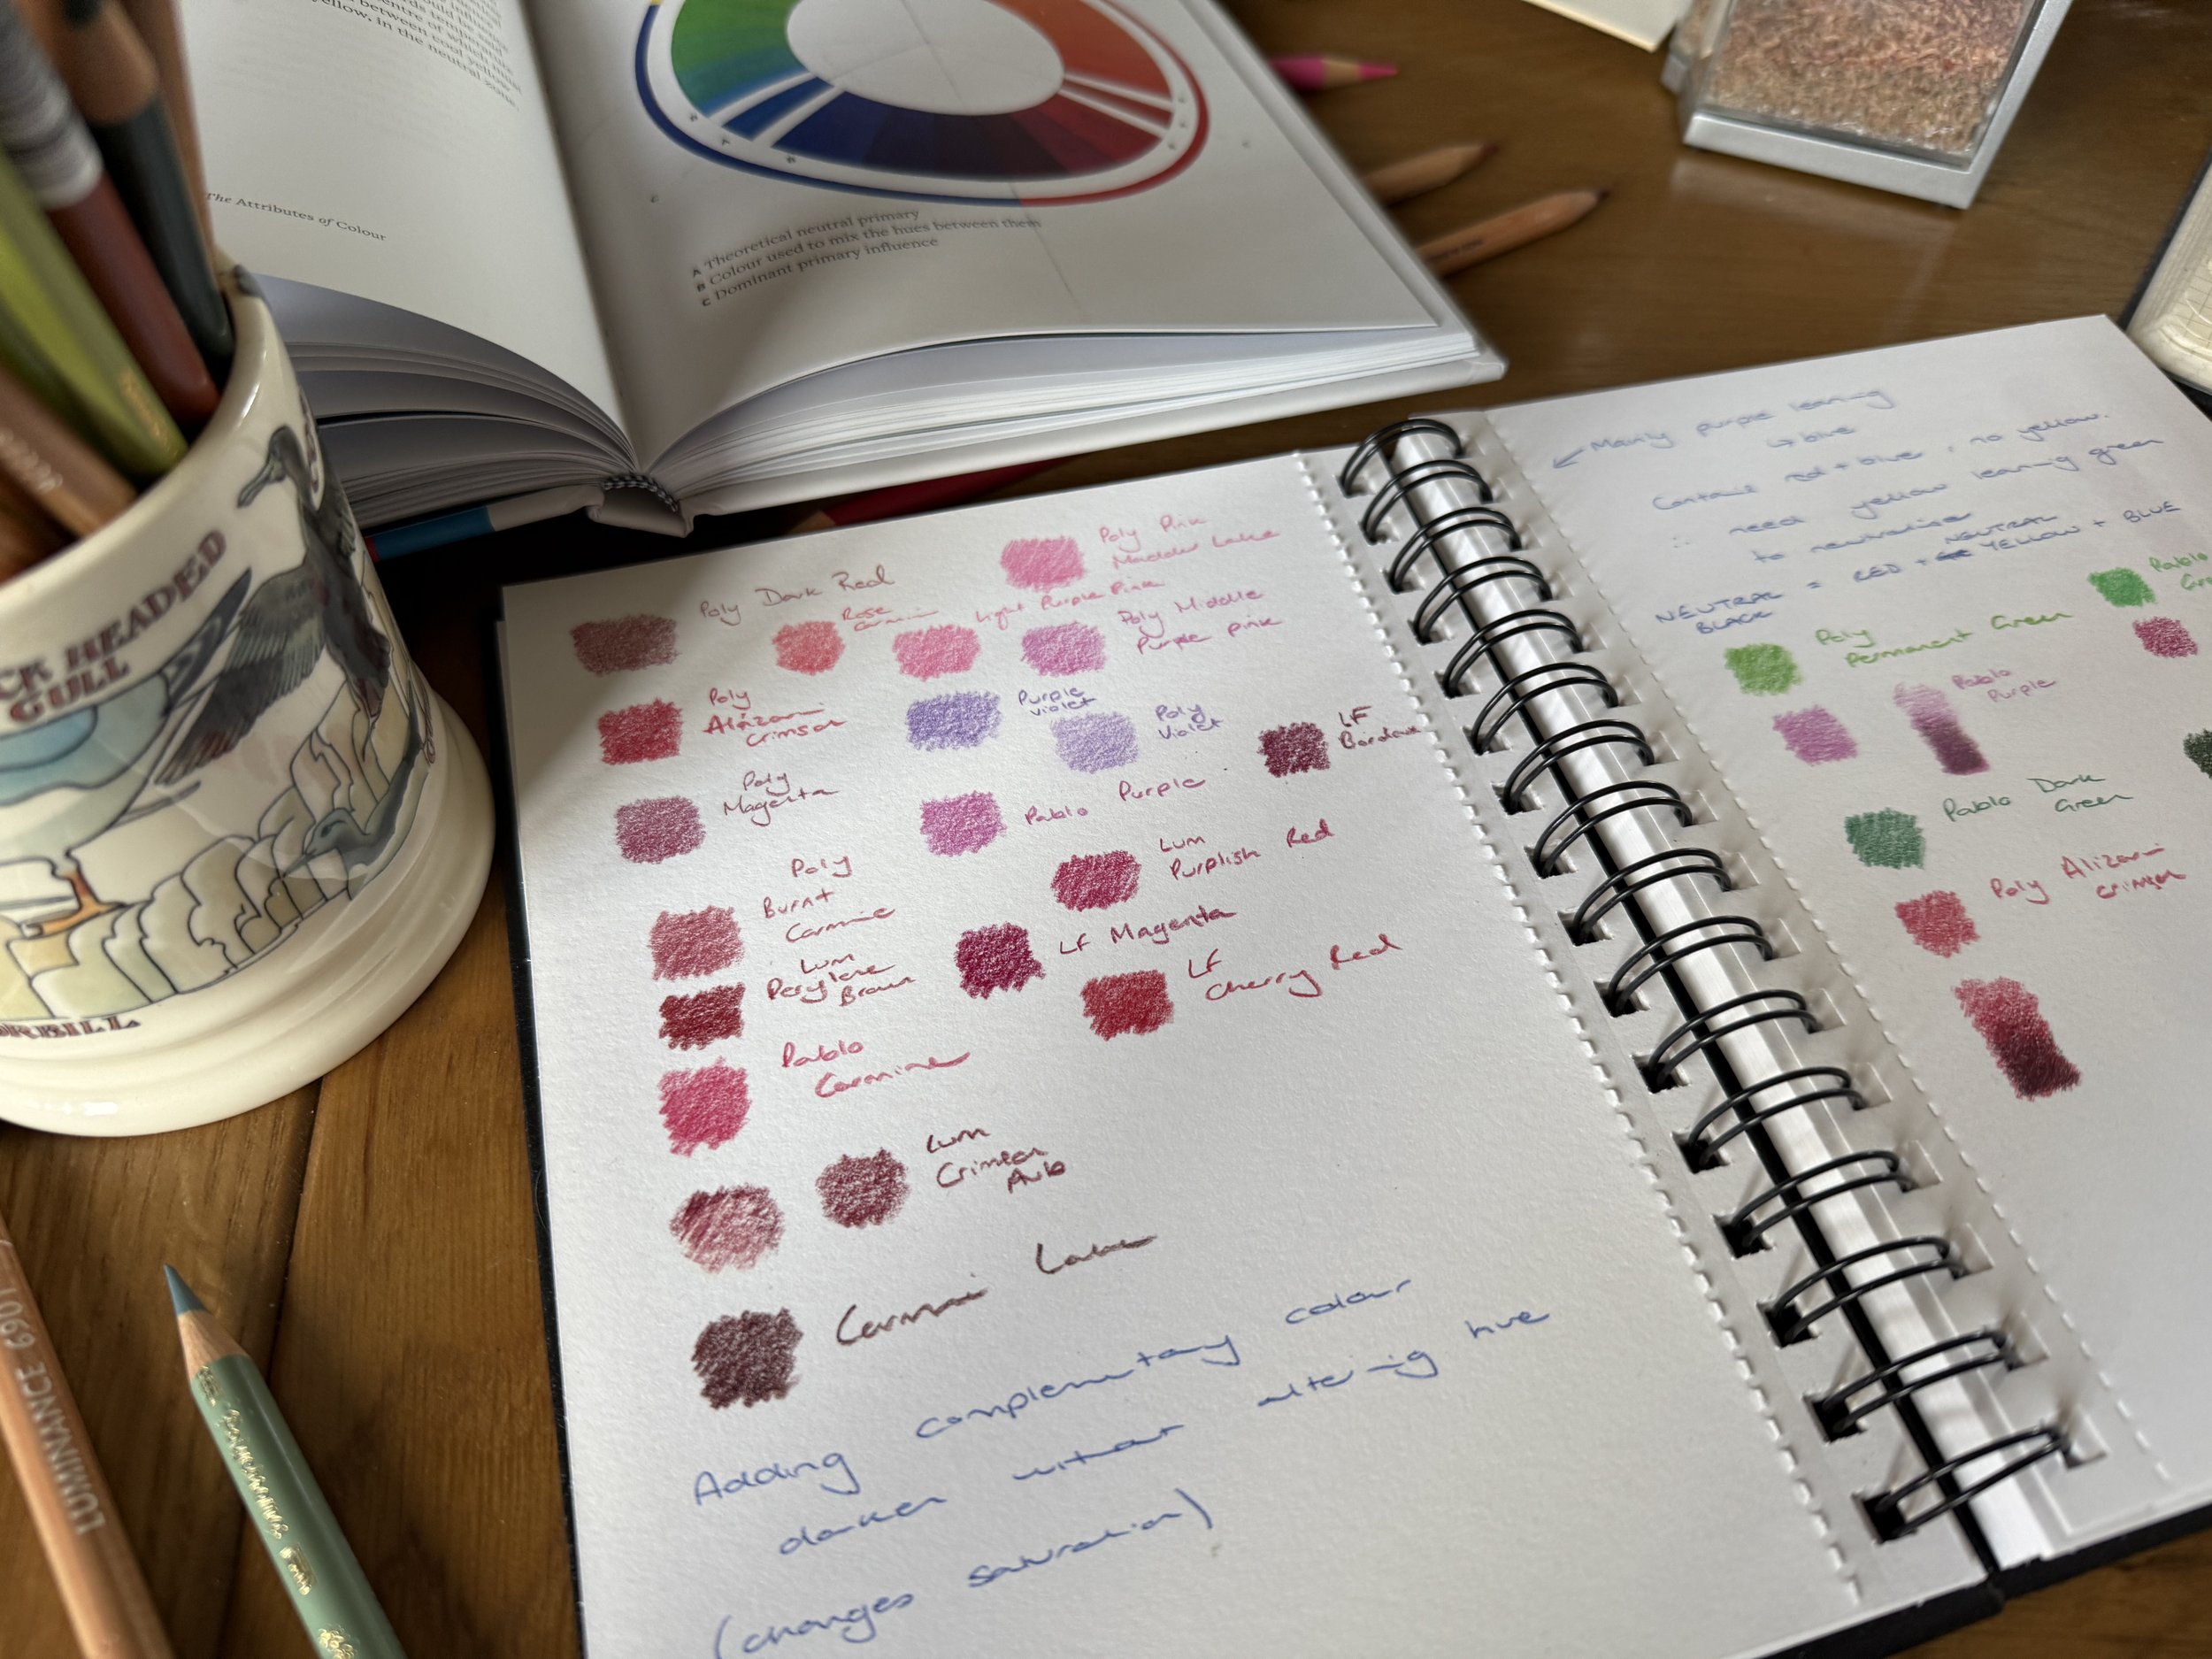 The Attributes of Colour
yellow, in the neutral zone
A Theoretical neutral primary
B Colour used to mix the hues between them
C Dominant primary influence
CK HEADED
GULL
ORBILL
LUMINANCE 6901
Poly Dark Red
Poly Pink
Madder Lake
Rose
Carmine
Light Purple Pink
Poly Middle
Purple pink
Poly
Alizarin
Crimson
Purple
violet
Poly
Violet
LF
Bordeaux
Poly
Magenta
Pablo Purple
Poly
Burnt
Carmine
Lum
Purplish Red
Lum
Perylene
Brown
LF Magenta
LF
Cherry Red
Pablo
Carmine
Lum
Crimson
Aub
Carmine Lake
Adding complementary colour
darken without altering hue
(changes saturation)
Mainly purple leaning
↳ blue
Contain red + blue, no yellow.
∴ need yellow leaning green
to neutralise
NEUTRAL
NEUTRAL = RED + YELLOW + BLUE
BLACK
Pablo
Poly
Permanent Green
Pablo
Purple
Pablo Dark
Green
Poly Alizarin
Crimson